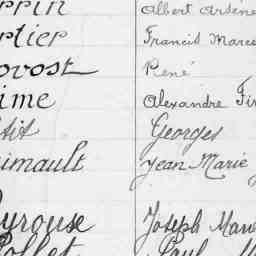 rrin Albert Arsène
rtier Francis Marce
ovost René
ime Alexandre Fir
tit Georges
imault Jean Marie
yrouse Joseph Mari
Pollet Paul